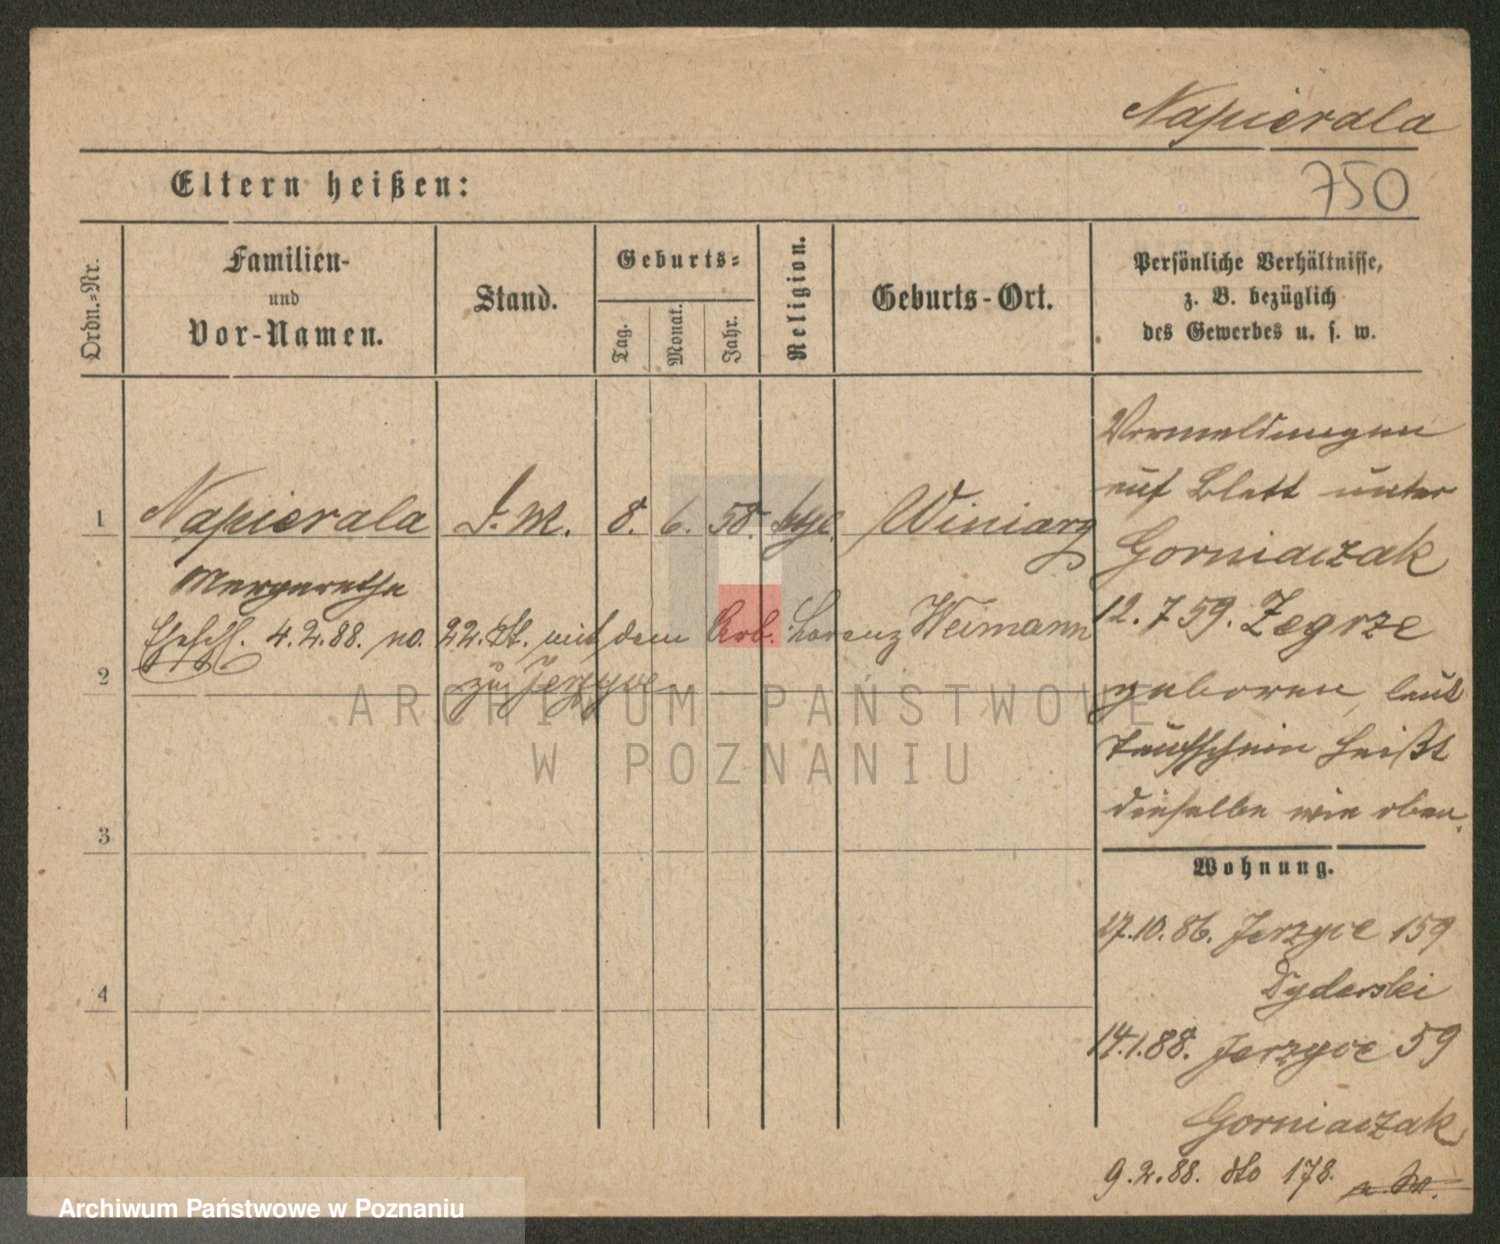 Napierala
Eltern heißen:
750
Ordn.=Nr.
Familien-
und
Vor-Namen.
Stand.
Geburts=
Tag.
Monat.
Jahr.
Religion.
Geburts-Ort.
Persönliche Verhältnisse,
z. B. bezüglich
des Gewerbes u. s. w.
1
Napierala
8. 6. 58. ktgl.
Winiary
Margarethe
Ehesch. 4.2.88. no. 22. St. mit dem Arb. Lorenz Weimann
zu Jerzyce
2
3
4
Vormeldungen
auf Blatt unter
Gorniaczak
12. 7 59. Zegrze
geboren, laut
Taufschein heißt
dieselbe wie oben.
Wohnung.
27.10. 86. Jerzyce 159
Dydarski
14.1.88. Jerzyce 59
Gorniaczak
9.2.88. dto 178.
ARCHIWUM PAŃSTWOWE
W POZNANIU
Archiwum Państwowe w Poznaniu